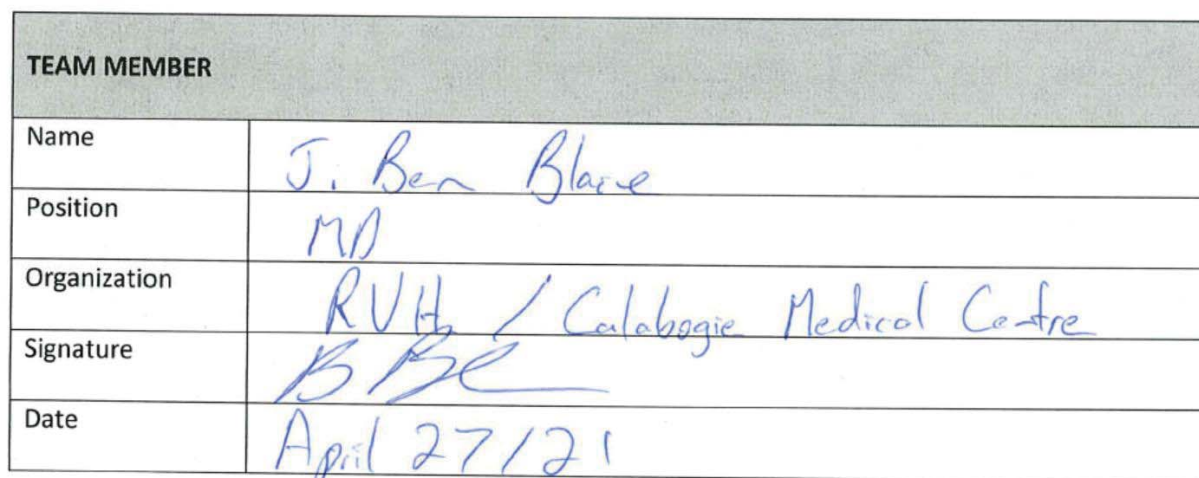 TEAM MEMBER
Name J. Ben Blaire
Position MD
Organization RVH / Calabogie Medical Centre
Signature
Date April 27/21